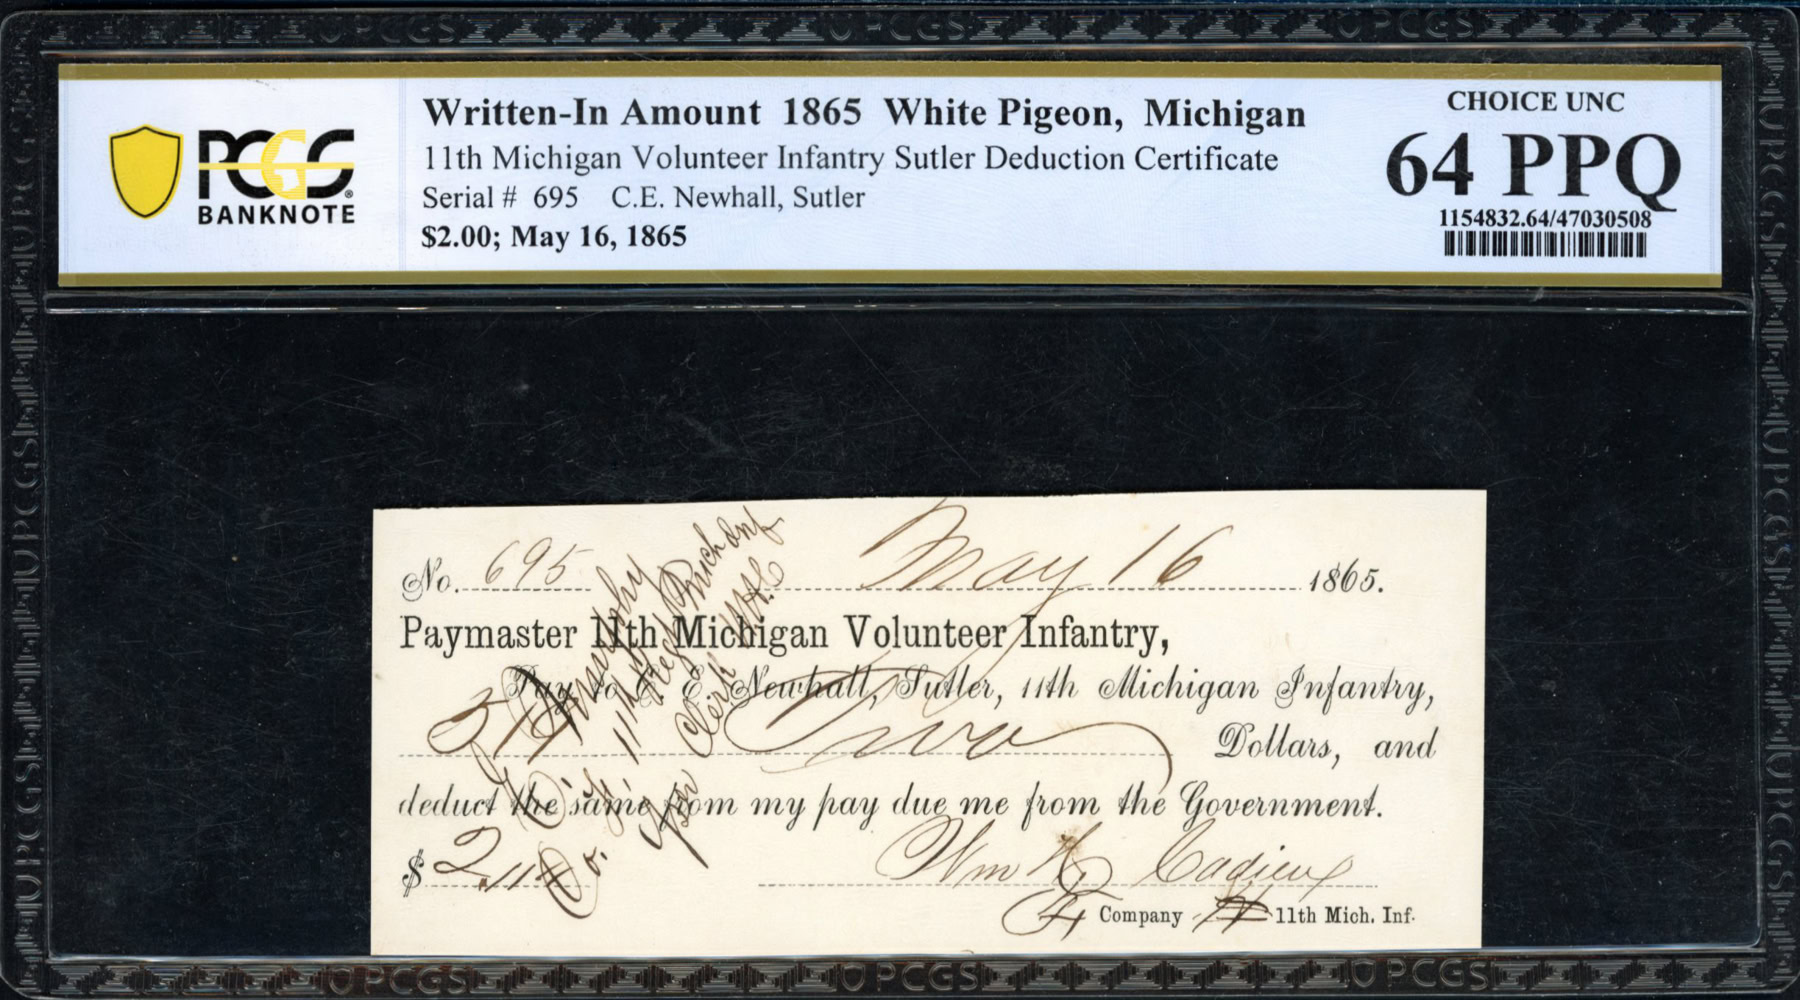 PCGS
BANKNOTE
Written-In Amount 1865 White Pigeon, Michigan
11th Michigan Volunteer Infantry Sutler Deduction Certificate
Serial # 695 C.E. Newhall, Sutler
$2.00; May 16, 1865
CHOICE UNC
64 PPQ
1154832.64/47030508
No. 695 May 16 1865.
Paymaster 11th Michigan Volunteer Infantry,
Pay to C. E. Newhall, Sutler, 11th Michigan Infantry,
Two Dollars, and
deduct the same from my pay due me from the Government.
$ 2
Wm Cadieux
Company 11th Mich. Inf.
Murphy
Co. 11th Regt Mich Inf
Clerk